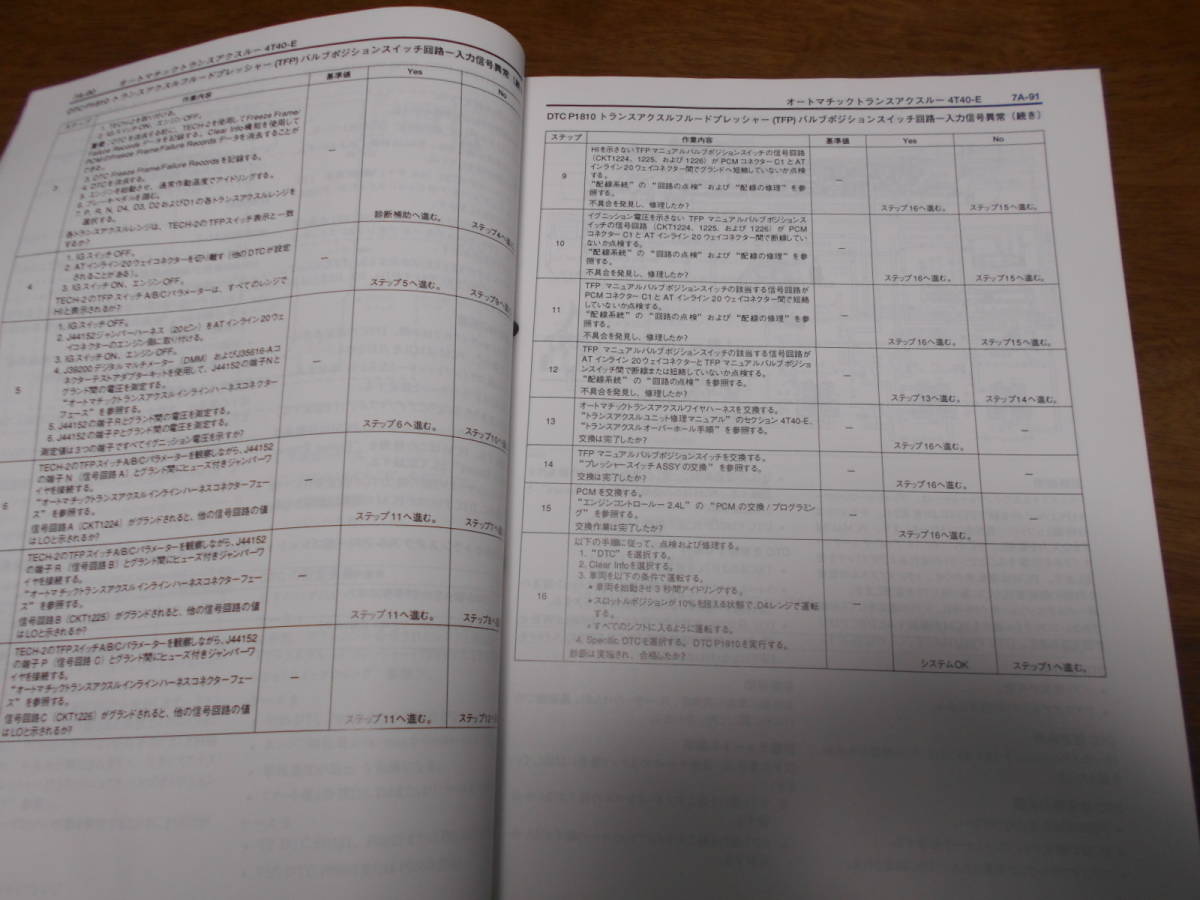 7A-90
オートマチックトランスアクスルー 4T40-E
DTC P1810 トランスアクスルフルードプレッシャー (TFP) バルブポジションスイッチ回路ー入力信号異常
ステップ
作業内容
基準値
Yes
No
3
1. TECH-2を取り付ける。
2. IGスイッチON、エンジンOFF。
重要：DTCを消去する前に、TECH-2を使用してFreeze Frame/
Failure Recordsデータを記録する。Clear Info機能を使用して
PCMのFreeze Frame/Failure Recordsデータを消去することが
できる。
3. DTC Freeze Frame/Failure Recordsを記録する。
4. DTCを消去する。
5. エンジンを始動させ、通常作動温度でアイドリングする。
6. ブレーキペダルを踏む。
7. P, R, N, D4, D3, D2およびD1の各トランスアクスルレンジを
選択する。
各トランスアクスルレンジは、TECH-2のTFPスイッチ表示と一致
するか?
－
診断補助へ進む。
ステップ4へ進
4
1. IGスイッチOFF。
2. ATインライン20ウェイコネクターを切り離す（他のDTCが設定
されることがある）。
3. IGスイッチON、エンジンOFF。
TECH-2のTFPスイッチA/B/Cパラメーターは、すべてのレンジで
HIと表示されるか?
－
ステップ5へ進む。
ステップ9へ進
5
1. IGスイッチOFF。
2. J44152ジャンパーハーネス（20ピン）をATインライン20ウェ
イコネクターのエンジン側に取り付ける。
3. IGスイッチON、エンジンOFF。
4. J39200デジタルマルチメーター（DMM）およびJ35616-Aコ
ネクターテストアダプターキットを使用して、J44152の端子Nと
グランド間の電圧を測定する。
“オートマチックトランスアクスルインラインハーネスコネクター
フェース”を参照する。
5. J44152の端子Rとグランド間の電圧を測定する。
6. J44152の端子Pとグランド間の電圧を測定する。
測定値は3つの端子ですべてイグニッション電圧を示すか?
－
ステップ6へ進む。
ステップ10へ
6
TECH-2のTFPスイッチA/B/Cパラメーターを観察しながら、J44152
の端子N（信号回路A）とグランド間にヒューズ付きジャンパーワ
イヤを接続する。
“オートマチックトランスアクスルインラインハーネスコネクターフェー
ス”を参照する。
信号回路A（CKT1224）がグランドされると、他の信号回路の値
はLOと示されるか?
－
ステップ11へ進む。
ステップ7へ
TECH-2のTFPスイッチA/B/Cパラメーターを観察しながら、J44152
の端子R（信号回路B）とグランド間にヒューズ付きジャンパーワ
イヤを接続する。
“オートマチックトランスアクスルインラインハーネスコネクターフェー
ス”を参照する。
信号回路B（CKT1225）がグランドされると、他の信号回路の値
はLOと示されるか?
－
ステップ11へ進む。
ステップ8へ
TECH-2のTFPスイッチA/B/Cパラメーターを観察しながら、J44152
の端子P（信号回路C）とグランド間にヒューズ付きジャンパーワ
イヤを接続する。
“オートマチックトランスアクスルインラインハーネスコネクターフェー
ス”を参照する。
信号回路C（CKT1226）がグランドされると、他の信号回路の値
はLOと示されるか?
－
ステップ11へ進む。
ステップ12
オートマチックトランスアクスルー 4T40-E
7A-91
DTC P1810 トランスアクスルフルードプレッシャー (TFP) バルブポジションスイッチ回路ー入力信号異常（続き）
ステップ
作業内容
基準値
Yes
No
9
HIを示さないTFPマニュアルバルブポジションスイッチの信号回路
（CKT1224、1225、および1226）がPCMコネクターC1とAT
インライン20ウェイコネクター間でグランドへ短絡していないか点検
する。
“配線系統”の“回路の点検”および“配線の修理”を参
照する。
不具合を発見し、修理したか?
－
ステップ16へ進む。
ステップ15へ進む。
10
イグニッション電圧を示さない TFP マニュアルバルブポジションス
イッチの信号回路（CKT1224、1225、および 1226）が PCM
コネクター C1 と AT インライン 20 ウェイコネクター間で断線してい
ないか点検する。
“配線系統”の“回路の点検”および“配線の修理”を参
照する。
不具合を発見し、修理したか?
－
ステップ16へ進む。
ステップ15へ進む。
11
TFP マニュアルバルブポジションスイッチの該当する信号回路が
PCMコネクター C1とAT インライン 20 ウェイコネクター間で短絡
していないか点検する。
“配線系統”の“回路の点検”および“配線の修理”を参
照する。
不具合を発見し、修理したか?
－
ステップ16へ進む。
ステップ15へ進む。
12
TFP マニュアルバルブポジションスイッチの該当する信号回路が
AT インライン 20ウェイコネクターとTFP マニュアルバルブポジショ
ンスイッチ間で断線または短絡していないか点検する。
“配線系統”の“回路の点検”を参照する。
不具合を発見し、修理したか?
－
ステップ13へ進む。
ステップ14へ進む。
13
オートマチックトランスアクスルワイヤハーネスを交換する。
“トランスアクスルユニット修理マニュアル”のセクション 4T40-E、
“トランスアクスルオーバーホール手順”を参照する。
交換は完了したか?
－
ステップ16へ進む。
－
14
TFP マニュアルバルブポジションスイッチを交換する。
“プレッシャースイッチ ASSY の交換”を参照する。
交換は完了したか?
－
ステップ16へ進む。
－
15
PCM を交換する。
“エンジンコントロールー 2.4L”の“PCM の交換／プログラミン
グ”を参照する。
交換作業は完了したか?
－
ステップ16へ進む。
－
16
以下の手順に従って、点検および修理する。
1. “DTC”を選択する。
2. Clear Infoを選択する。
3. 車両を以下の条件で運転する。
• 車両を始動させ 3 秒間アイドリングする。
• スロットルポジションが 10%を超える状態で、D4レンジで運転
する。
• すべてのシフトに入るように運転する。
4. Specific DTCを選択する。DTC P1810を実行する。
診断は実施され、合格したか?
－
システムOK
ステップ1へ進む。